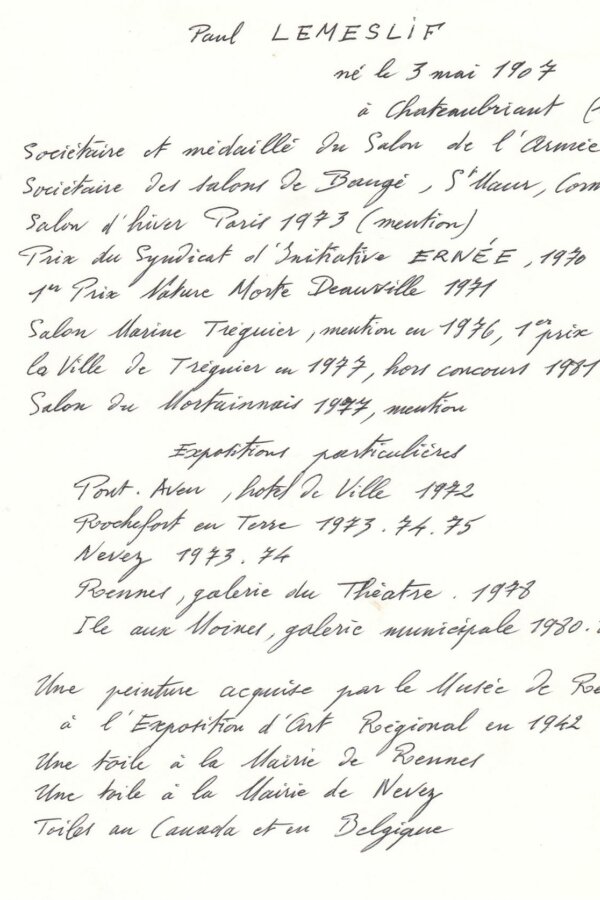 Paul LEMESLIF
né le 3 mai 1907
à Chateaubriant (
Sociétaire et médaillé du Salon de l'Armée
Sociétaire des salons de Baugé, St Maur, Corm
Salon d'hiver Paris 1973 (mention)
Prix du Syndicat d'Initiative ERNÉE, 1970
1er Prix Nature Morte Deauville 1971
Salon Marine Tréguier, mention en 1976, 1er prix
la Ville de Tréguier en 1977, hors concours 1981
Salon du Mortainnais 1977, mention
Expositions particulières
Pont. Aven, hotel de Ville 1972
Rochefort en Terre 1973.74.75
Nevez 1973.74
Rennes, galerie du Théatre. 1978
Ile aux Moines, galerie municipale 1980.
Une peinture acquise par le Musée de Re
à l'Exposition d'Art Régional en 1942
Une toile à la Mairie de Rennes
Une toile à la Mairie de Nevez
Toiles au Canada et en Belgique